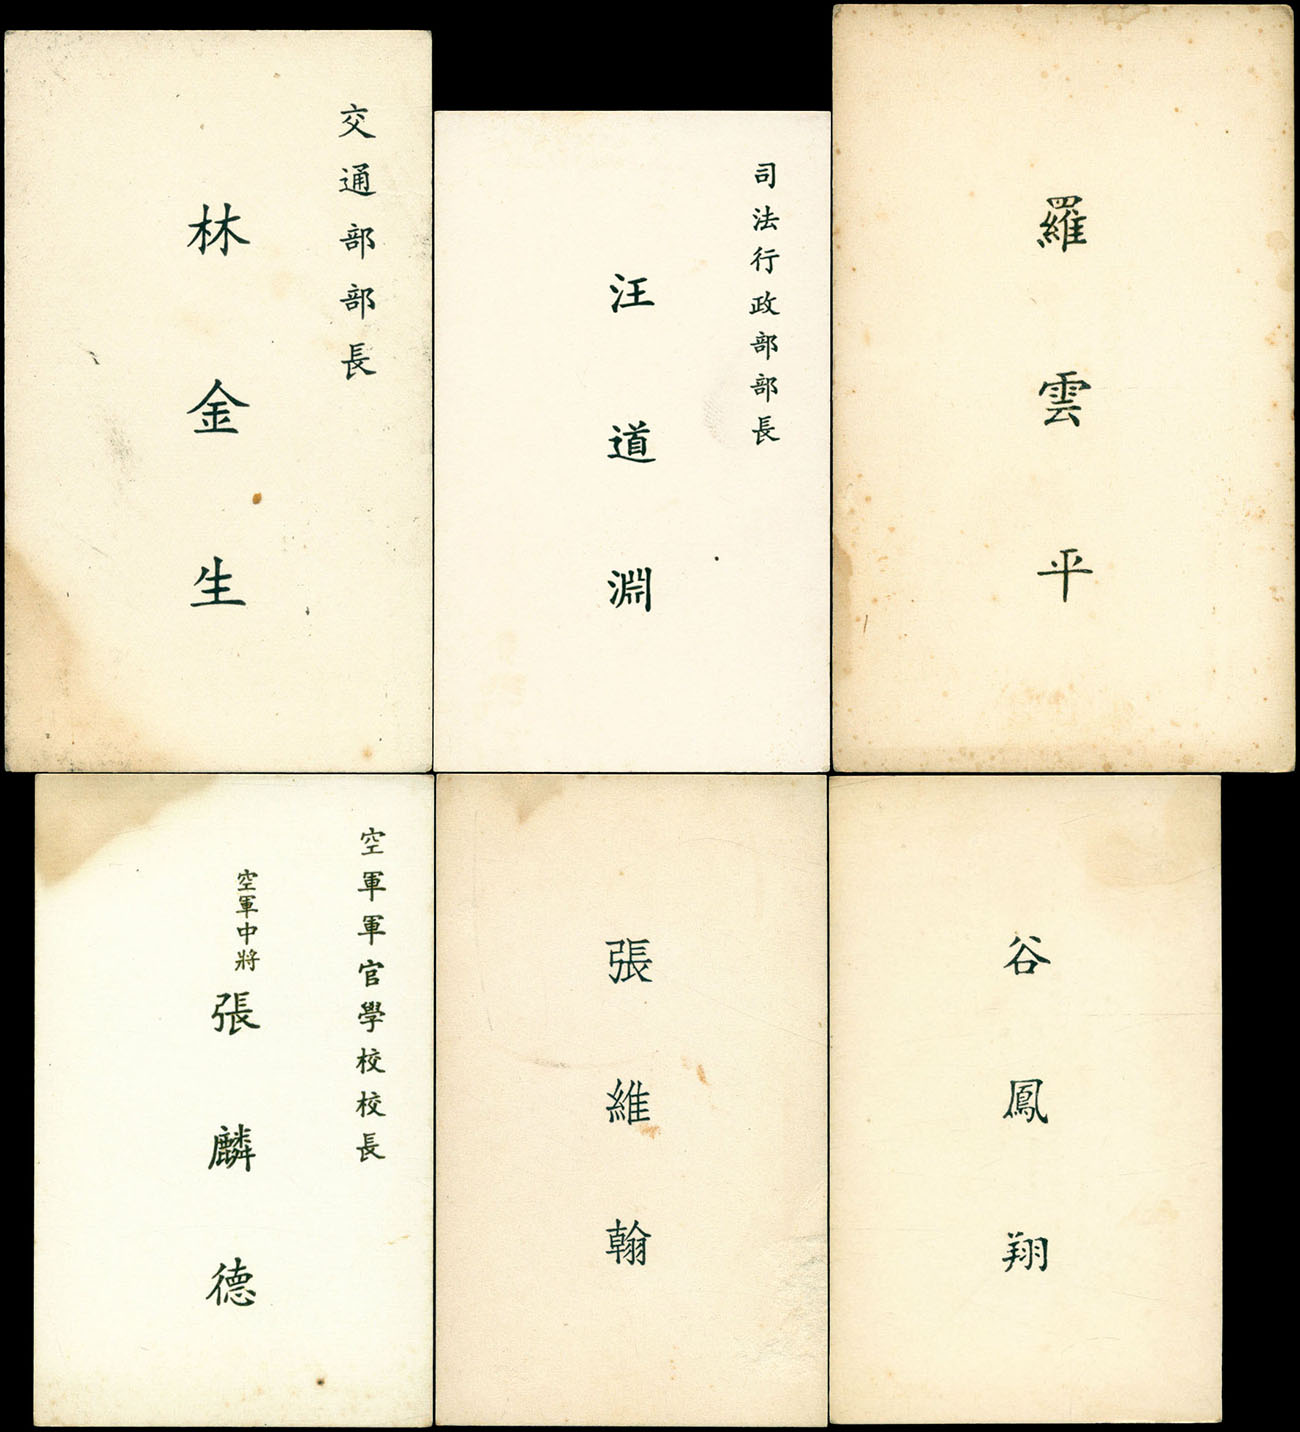 交通部部長
林金生
司法行政部部長
汪道淵
羅雲平
空軍軍官學校校長
空軍中將 張麟德
張維翰
谷鳳翔